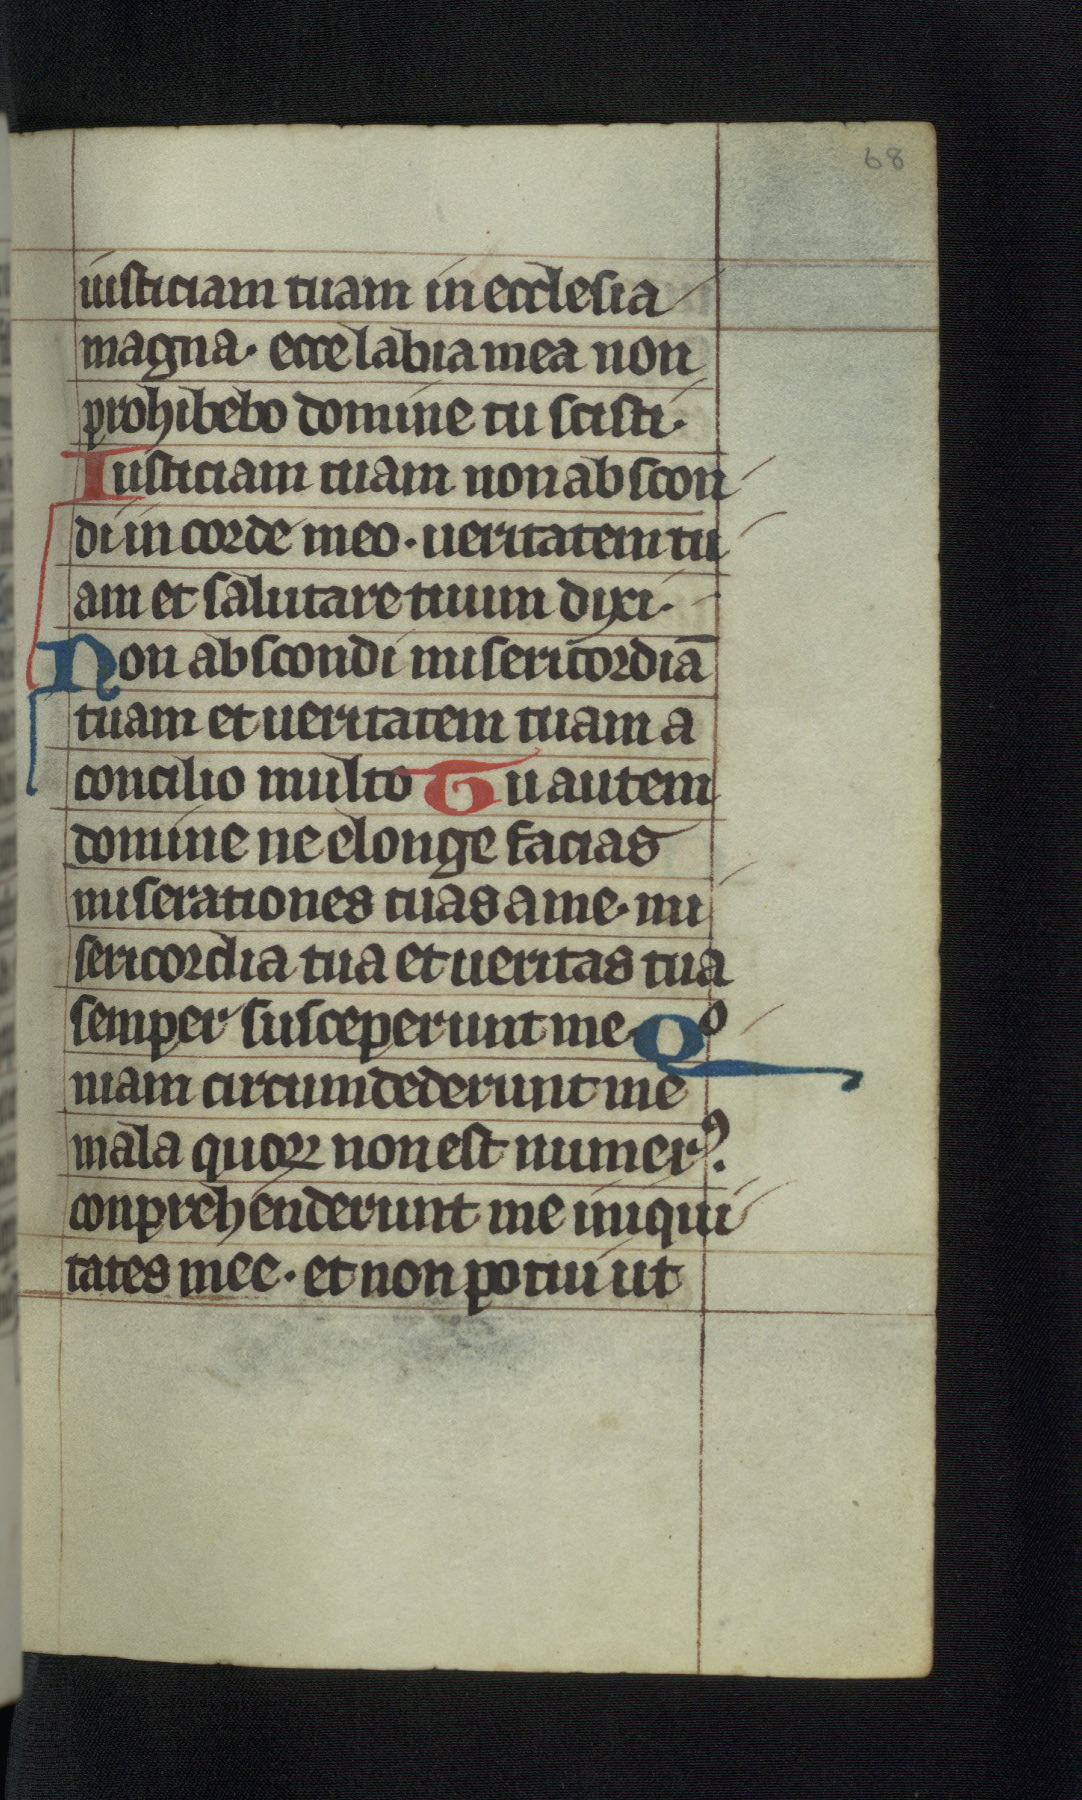 68
iusticiam tuam in ecclesia
magna· ecce labia mea non
prohibebo domine tu scisti·
Iusticiam tuam non abscon
di in corde meo· ueritatem tu
am et salutare tuum dixi·
Non abscondi misericordiā
tuam et ueritatem tuam a
concilio multo Tu autem
domine ne elonge facias
miserationes tuas a me· mi
sericordia tua et ueritas tua
semper susceperunt me Qo
niam circumdederunt me
mala quoꝝ non est numerꝰ.
conprehenderunt me iniqui
tates mee· et non potui ut